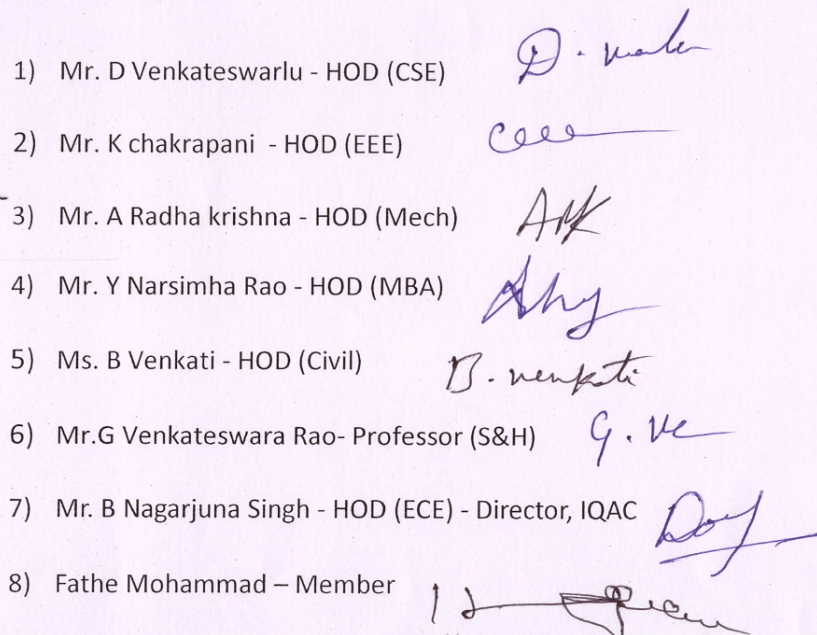 1) Mr. D Venkateswarlu - HOD (CSE)
2) Mr. K chakrapani - HOD (EEE)
3) Mr. A Radha krishna - HOD (Mech)
4) Mr. Y Narsimha Rao - HOD (MBA)
5) Ms. B Venkati - HOD (Civil) B. venkati
6) Mr.G Venkateswara Rao- Professor (S&H)
7) Mr. B Nagarjuna Singh - HOD (ECE) - Director, IQAC
8) Fathe Mohammad – Member